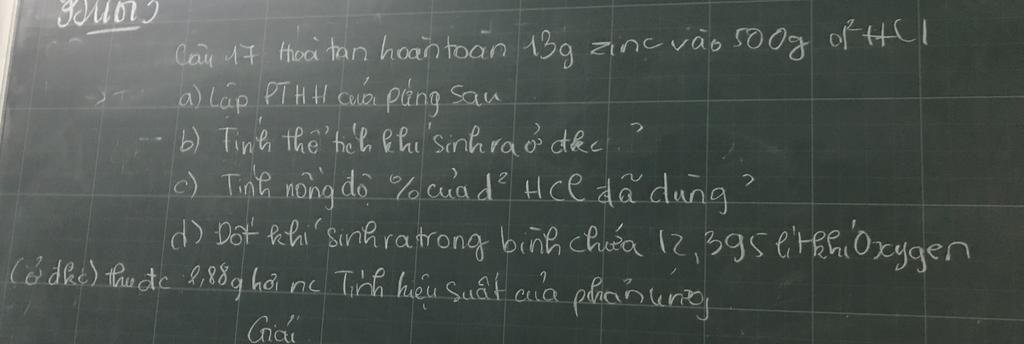 Câu 17 Hoà tan hoàn toàn 13g zinc vào 500g d² HCl
a) Lập PTHH của pứng sau
b) Tính thể tích khí sinh ra ở đkc ?
c) Tính nồng độ % của d² HCl đã dùng ?
d) Đốt khí sinh ra trong bình chứa 12,395 lít khí Oxygen
(ở đkc) thu đc 2,88g hơi nc Tính hiệu suất của phản ứng
Giải